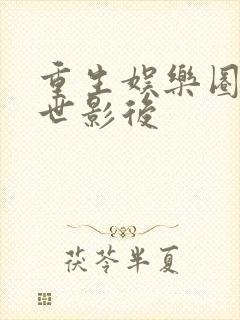 重生娛樂圈
世影後
茯苓半夏